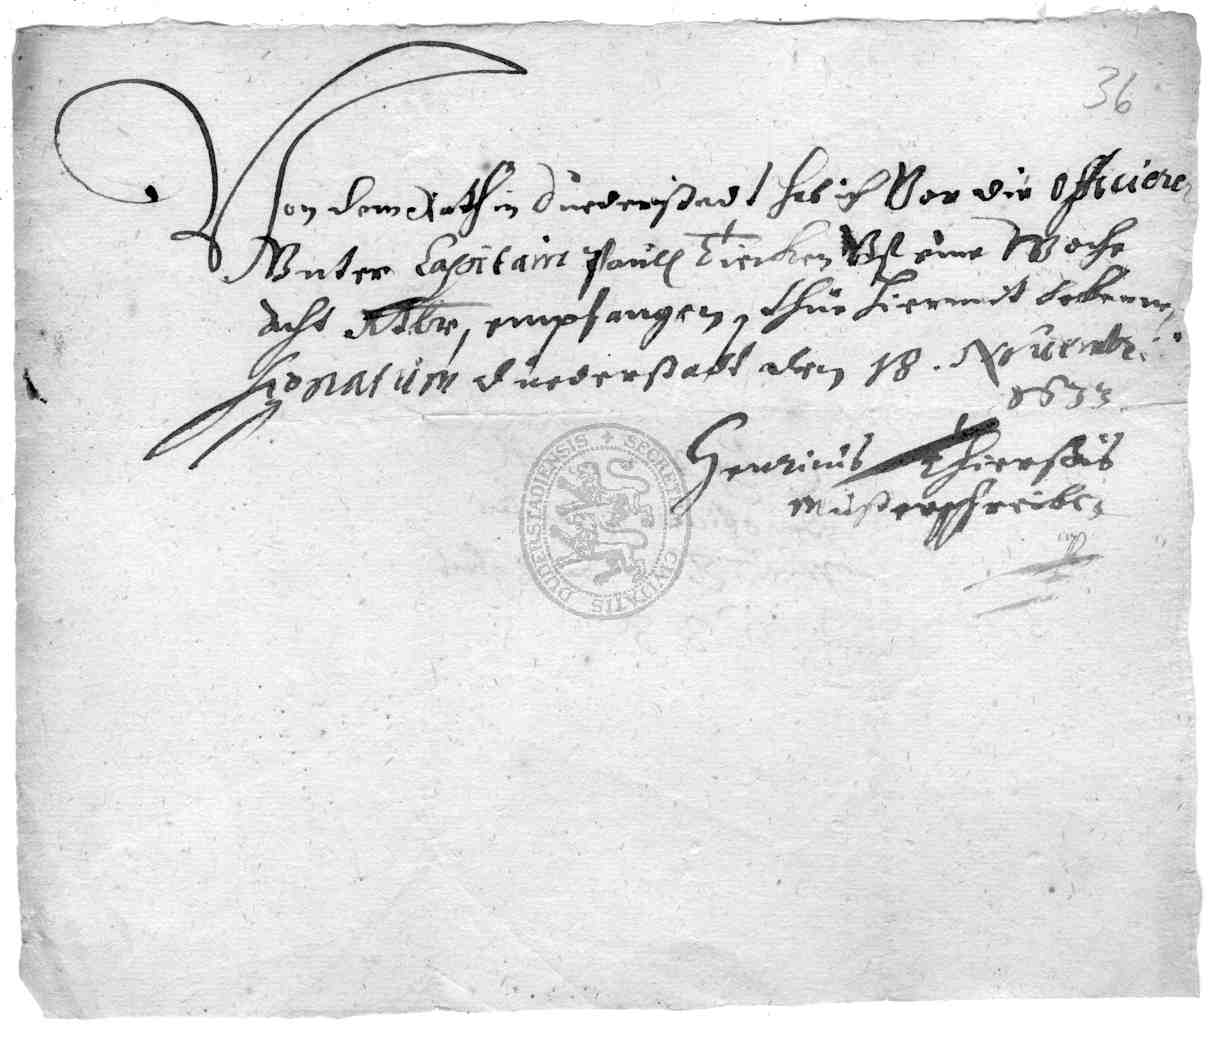 36
Von dem Rath in Duederstadt hab ich Vor die Officirer
Vnter Capitain Paull Tiecken Vff eine Woche
acht Rthlr, empfangen, thue hiermit bekennen,
Signatum Duederstadt den 18. Nouembr:
1633
Henricus Thierschüs
Musterschreiber
SECRETUM CIVITATIS DUDERSTADIENSIS